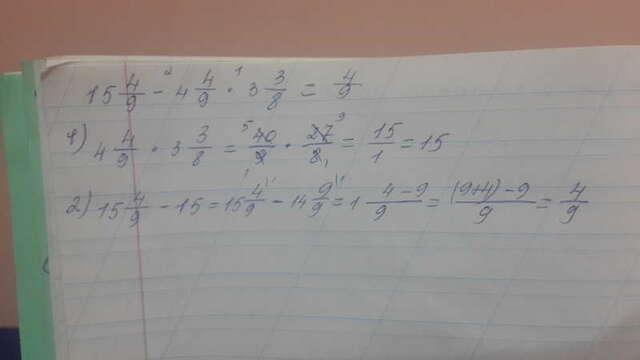 15 4/9 -² 4 4/9 ·¹ 3 3/8 = 4/9
1) 4 4/9 · 3 3/8 = ⁵40/9₁ · 27³/8₁ = 15/1 = 15
2) 15 4/9 - 15 = 15 4/9 - 14 9/9 = 1 4-9/9 = (9+4)-9/9 = 4/9